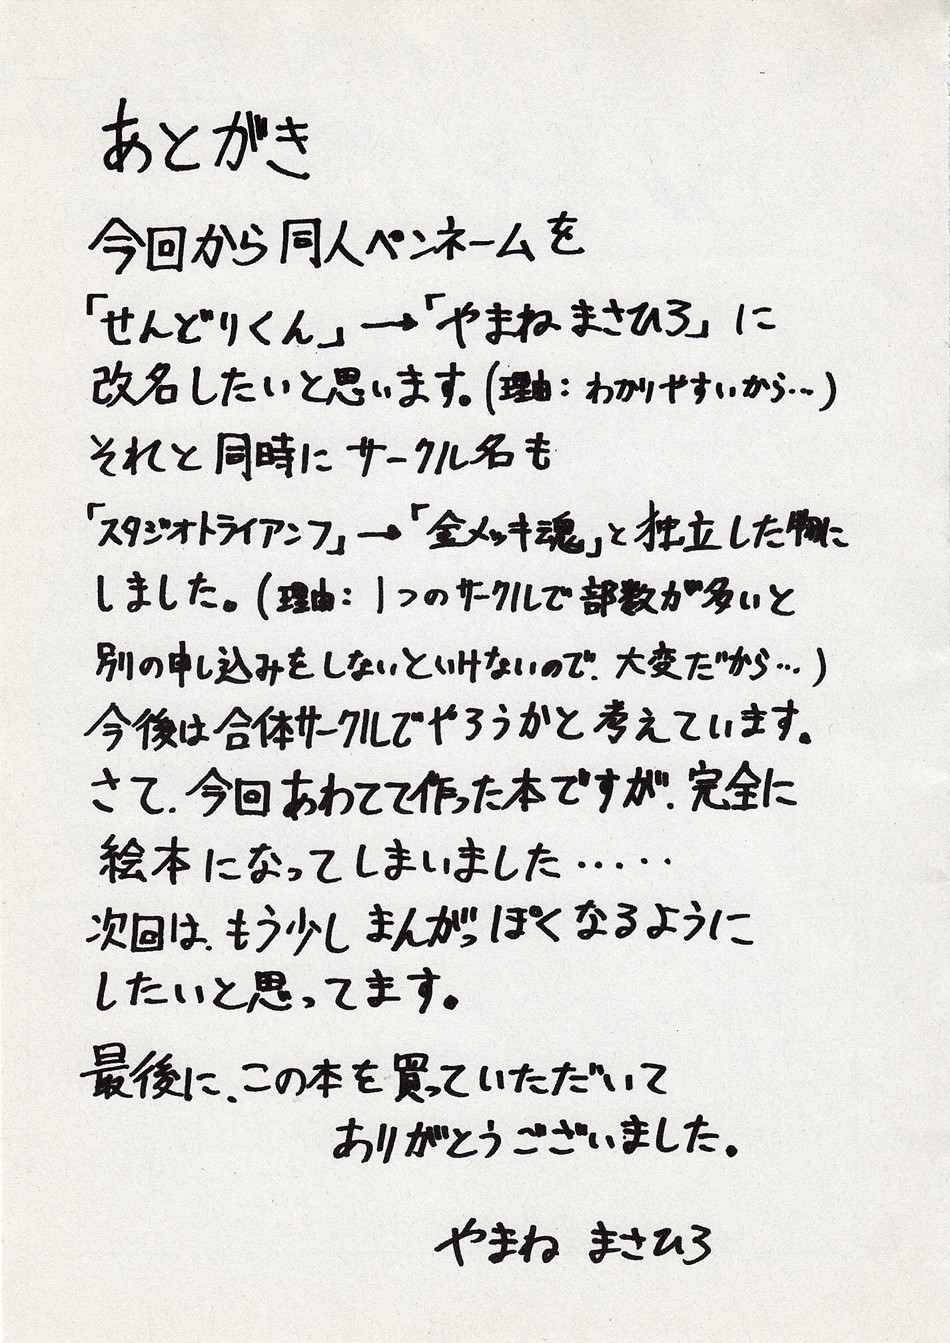 あとがき
今回から同人ペンネームを
「せんどりくん」→「やまねまさひろ」に
改名したいと思います。(理由：わかりやすいから…)
それと同時にサークル名も
「スタジオトライアンフ」→「金メッキ魂」と独立した物に
しました。(理由：1つのサークルで部数が多いと
別の申し込みをしないといけないので、大変だから…)
今後は合体サークルでやろうかと考えています。
さて、今回あわてて作った本ですが、完全に
絵本になってしまいました・・・・・
次回は、もう少しまんがっぽくなるように
したいと思ってます。
最後に、この本を買っていただいて
ありがとうございました。
やまね まさひろ